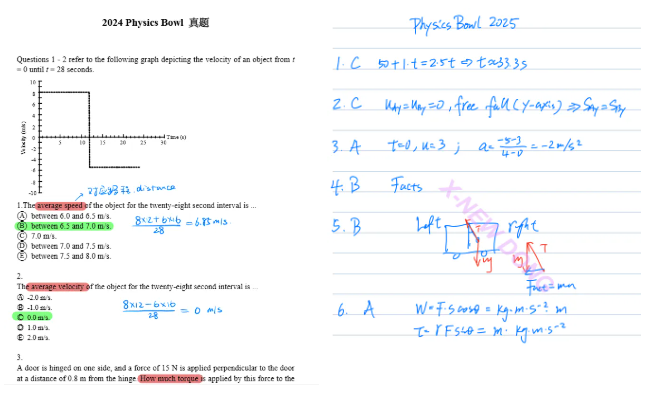 2024 Physics Bowl 真题
Questions 1 - 2 refer to the following graph depicting the velocity of an object from t
= 0 until t = 28 seconds.
Velocity (m/s)
10
8
6
4
2
0
-2
-4
-6
-8
-10
5 10 15 20 25 30 Time (s)
distance
1.The average speed of the object for the twenty-eight second interval is ...
A between 6.0 and 6.5 m/s.
B between 6.5 and 7.0 m/s.
C 7.0 m/s.
D between 7.0 and 7.5 m/s.
E between 7.5 and 8.0 m/s.
= 6.85 m/s
28
2.
The average velocity of the object for the twenty-eight second interval is ...
A -2.0 m/s.
B -1.0 m/s.
C 0.0 m/s.
D 1.0 m/s.
E 2.0 m/s.
8×12-6×16
28
= 0 m/s
3.
A door is hinged on one side, and a force of 15 N is applied perpendicular to the door
at a distance of 0.8 m from the hinge. How much torque is applied by this force to the
Physics Bowl 2025
1. C 50+1·t=2.5t ⇒ t≈33.3s
2. C free fall (y-axis) ⇒
3. A t=0, u=3 ; a= -5-3 / 4-0 = -2 m/s²
4. B Facts
5. B Left right
T
mg
6. A W=F·s cosθ = kg·m·s⁻²·m
= m· kg·m·s⁻²